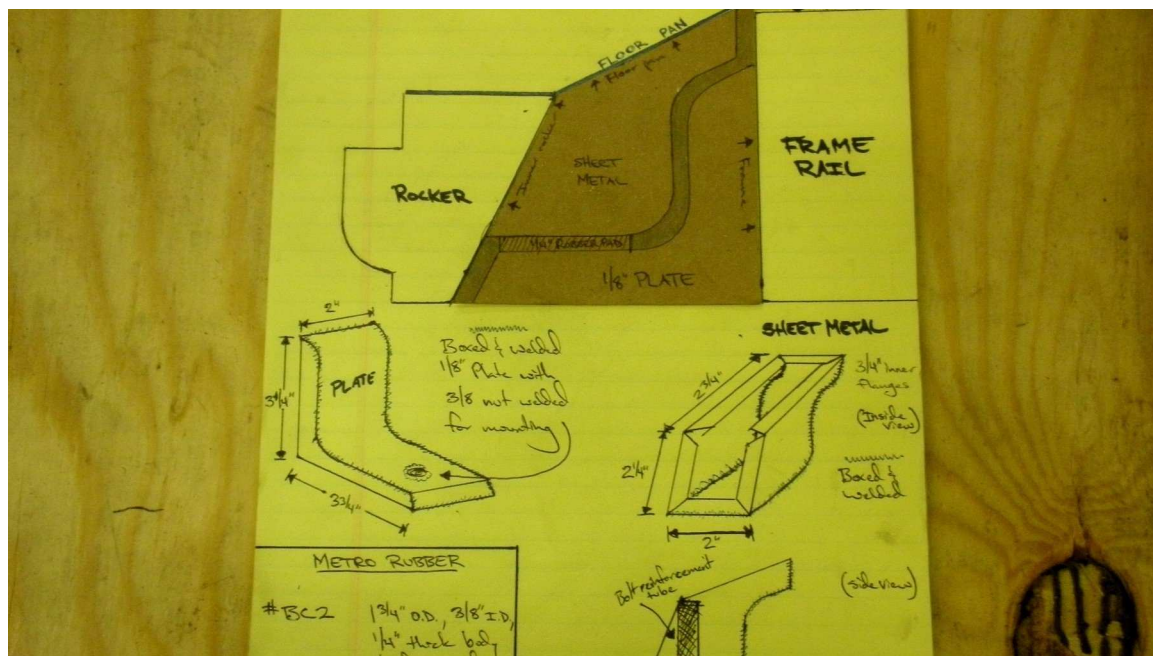 FLOOR PAN
Floor pan
Inner rocker
SHEET
METAL
Frame
FRAME
RAIL
ROCKER
1/4" RUBBER PAD
1/8" PLATE
2"
PLATE
3 1/4"
3 3/4"
Boxed & welded
1/8" Plate with
3/8 nut welded
for mounting
SHEET METAL
3/4" Inner
flanges
(Inside
view)
2 3/4"
2 1/4"
2"
Boxed &
welded
METRO RUBBER
#BC2
1 3/4" O.D., 3/8" I.D,
1/4" thick body
Bolt reinforcement
tube
(Side view)